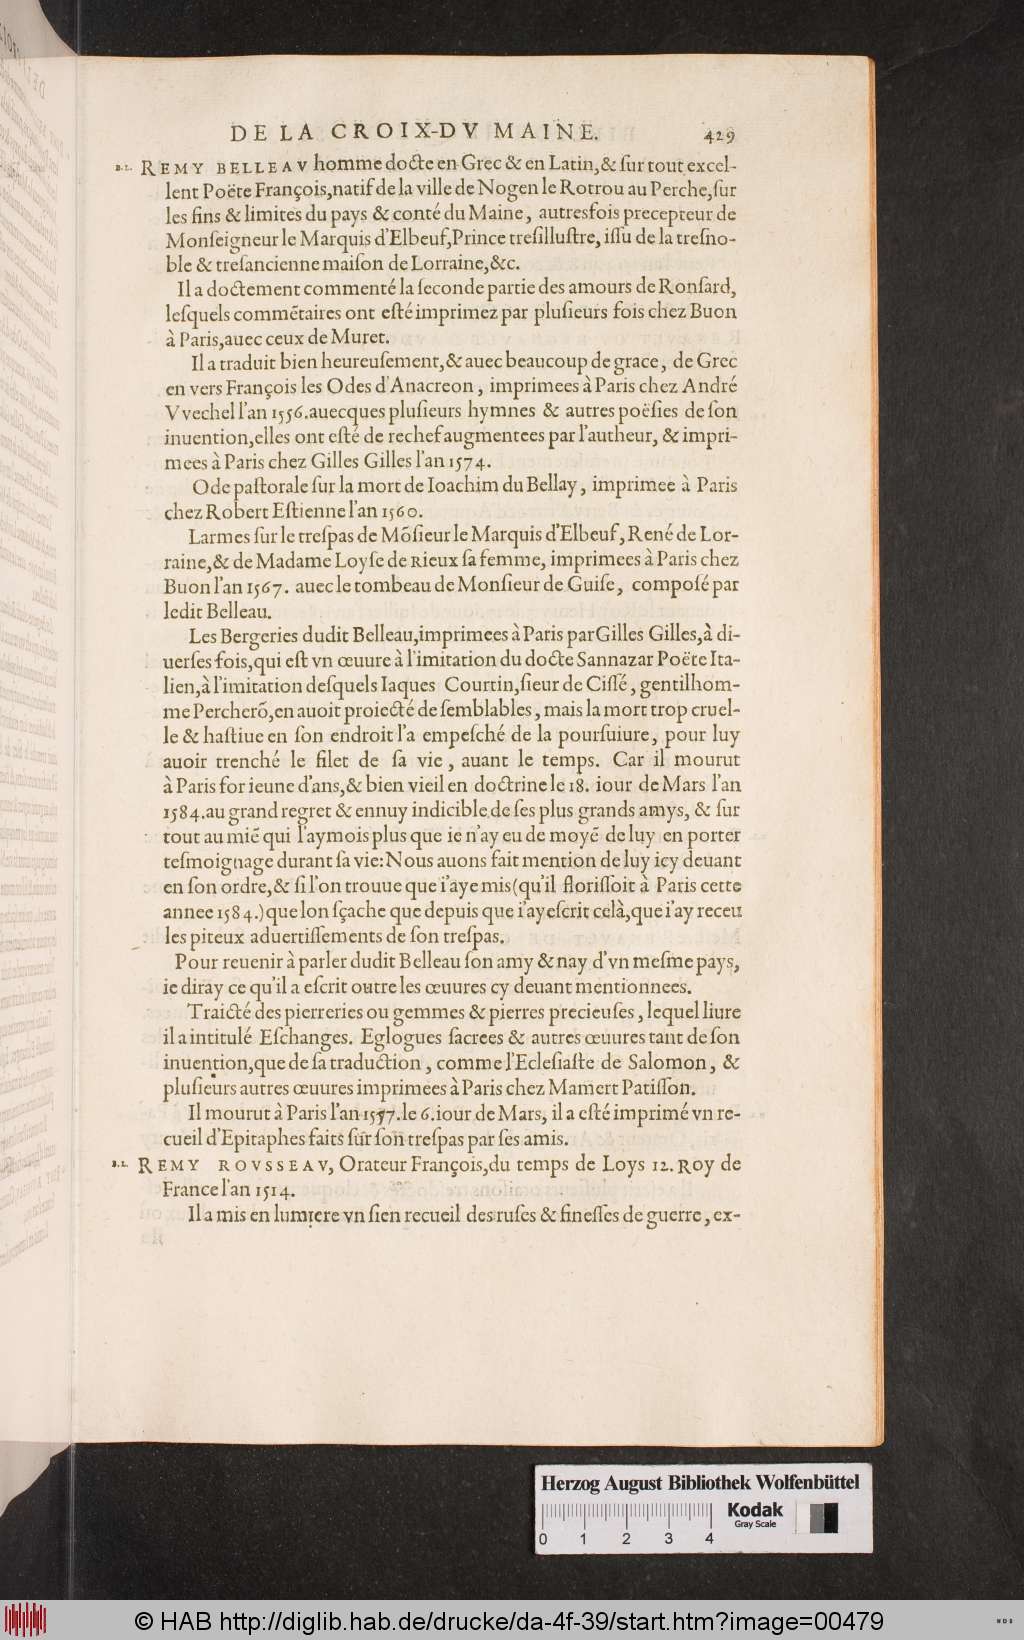 DE LA CROIX-DV MAINE. 429
B.L. REMY BELLEAV homme docte en Grec & en Latin,& ſur tout excel-
lent Poëte François,natif de la ville de Nogen le Rotrou au Perche,ſur
les fins & limites du pays & conté du Maine, autresfois precepteur de
Monſeigneur le Marquis d'Elbeuf,Prince treſilluſtre, iſſu de la treſno-
ble & treſancienne maiſon de Lorraine,&c.
Il a doctement commenté la ſeconde partie des amours de Ronſard,
leſquels commẽtaires ont eſté imprimez par pluſieurs fois chez Buon
à Paris,auec ceux de Muret.
Il a traduit bien heureuſement,& auec beaucoup de grace, de Grec
en vers François les Odes d'Anacreon, imprimees à Paris chez André
Vvechel l'an 1556.auecques pluſieurs hymnes & autres poëſies de ſon
inuention,elles ont eſté de rechef augmentees par l'autheur, & impri-
mees à Paris chez Gilles Gilles l'an 1574.
Ode paſtorale ſur la mort de Ioachim du Bellay, imprimee à Paris
chez Robert Eſtienne l'an 1560.
Larmes ſur le treſpas de Mõſieur le Marquis d'Elbeuf, René de Lor-
raine,& de Madame Loyſe de Rieux ſa femme, imprimees à Paris chez
Buon l'an 1567. auec le tombeau de Monſieur de Guiſe, compoſé par
ledit Belleau.
Les Bergeries dudit Belleau,imprimees à Paris par Gilles Gilles,à di-
uerſes fois,qui eſt vn œuure à l'imitation du docte Sannazar Poëte Ita-
lien,à l'imitation deſquels Iaques Courtin,ſieur de Ciſſé, gentilhom-
me Percherõ,en auoit proiecté de ſemblables, mais la mort trop cruel-
le & haſtiue en ſon endroit l'a empeſché de la pourſuiure, pour luy
auoir trenché le filet de ſa vie, auant le temps. Car il mourut
à Paris for ieune d'ans,& bien vieil en doctrine le 18. iour de Mars l'an
1584.au grand regret & ennuy indicible de ſes plus grands amys, & ſur
tout au miẽ qui l'aymois plus que ie n'ay eu de moyẽ de luy en porter
teſmoignage durant ſa vie: Nous auons fait mention de luy icy deuant
en ſon ordre,& ſi l'on trouue que i'aye mis (qu'il floriſſoit à Paris cette
annee 1584.) que lon ſçache que depuis que i'ay eſcrit celà,que i'ay receu
les piteux aduertiſſements de ſon treſpas.
Pour reuenir à parler dudit Belleau ſon amy & nay d'vn meſme pays,
ie diray ce qu'il a eſcrit outre les œuures cy deuant mentionnees.
Traicté des pierreries ou gemmes & pierres precieuſes, lequel liure
il a intitulé Eſchanges. Eglogues ſacrees & autres œuures tant de ſon
inuention,que de ſa traduction, comme l'Ecleſiaſte de Salomon, &
pluſieurs autres œuures imprimees à Paris chez Mamert Patiſſon.
Il mourut à Paris l'an 1577.le 6.iour de Mars, il a eſté imprimé vn re-
cueil d'Epitaphes faits ſur ſon treſpas par ſes amis.
B.L. REMY ROVSSEAV, Orateur François,du temps de Loys 12. Roy de
France l'an 1514.
Il a mis en lumiere vn ſien recueil des ruſes & fineſſes de guerre, ex-
Herzog August Bibliothek Wolfenbüttel
Kodak
Gray Scale
0 1 2 3 4
© HAB http://diglib.hab.de/drucke/da-4f-39/start.htm?image=00479